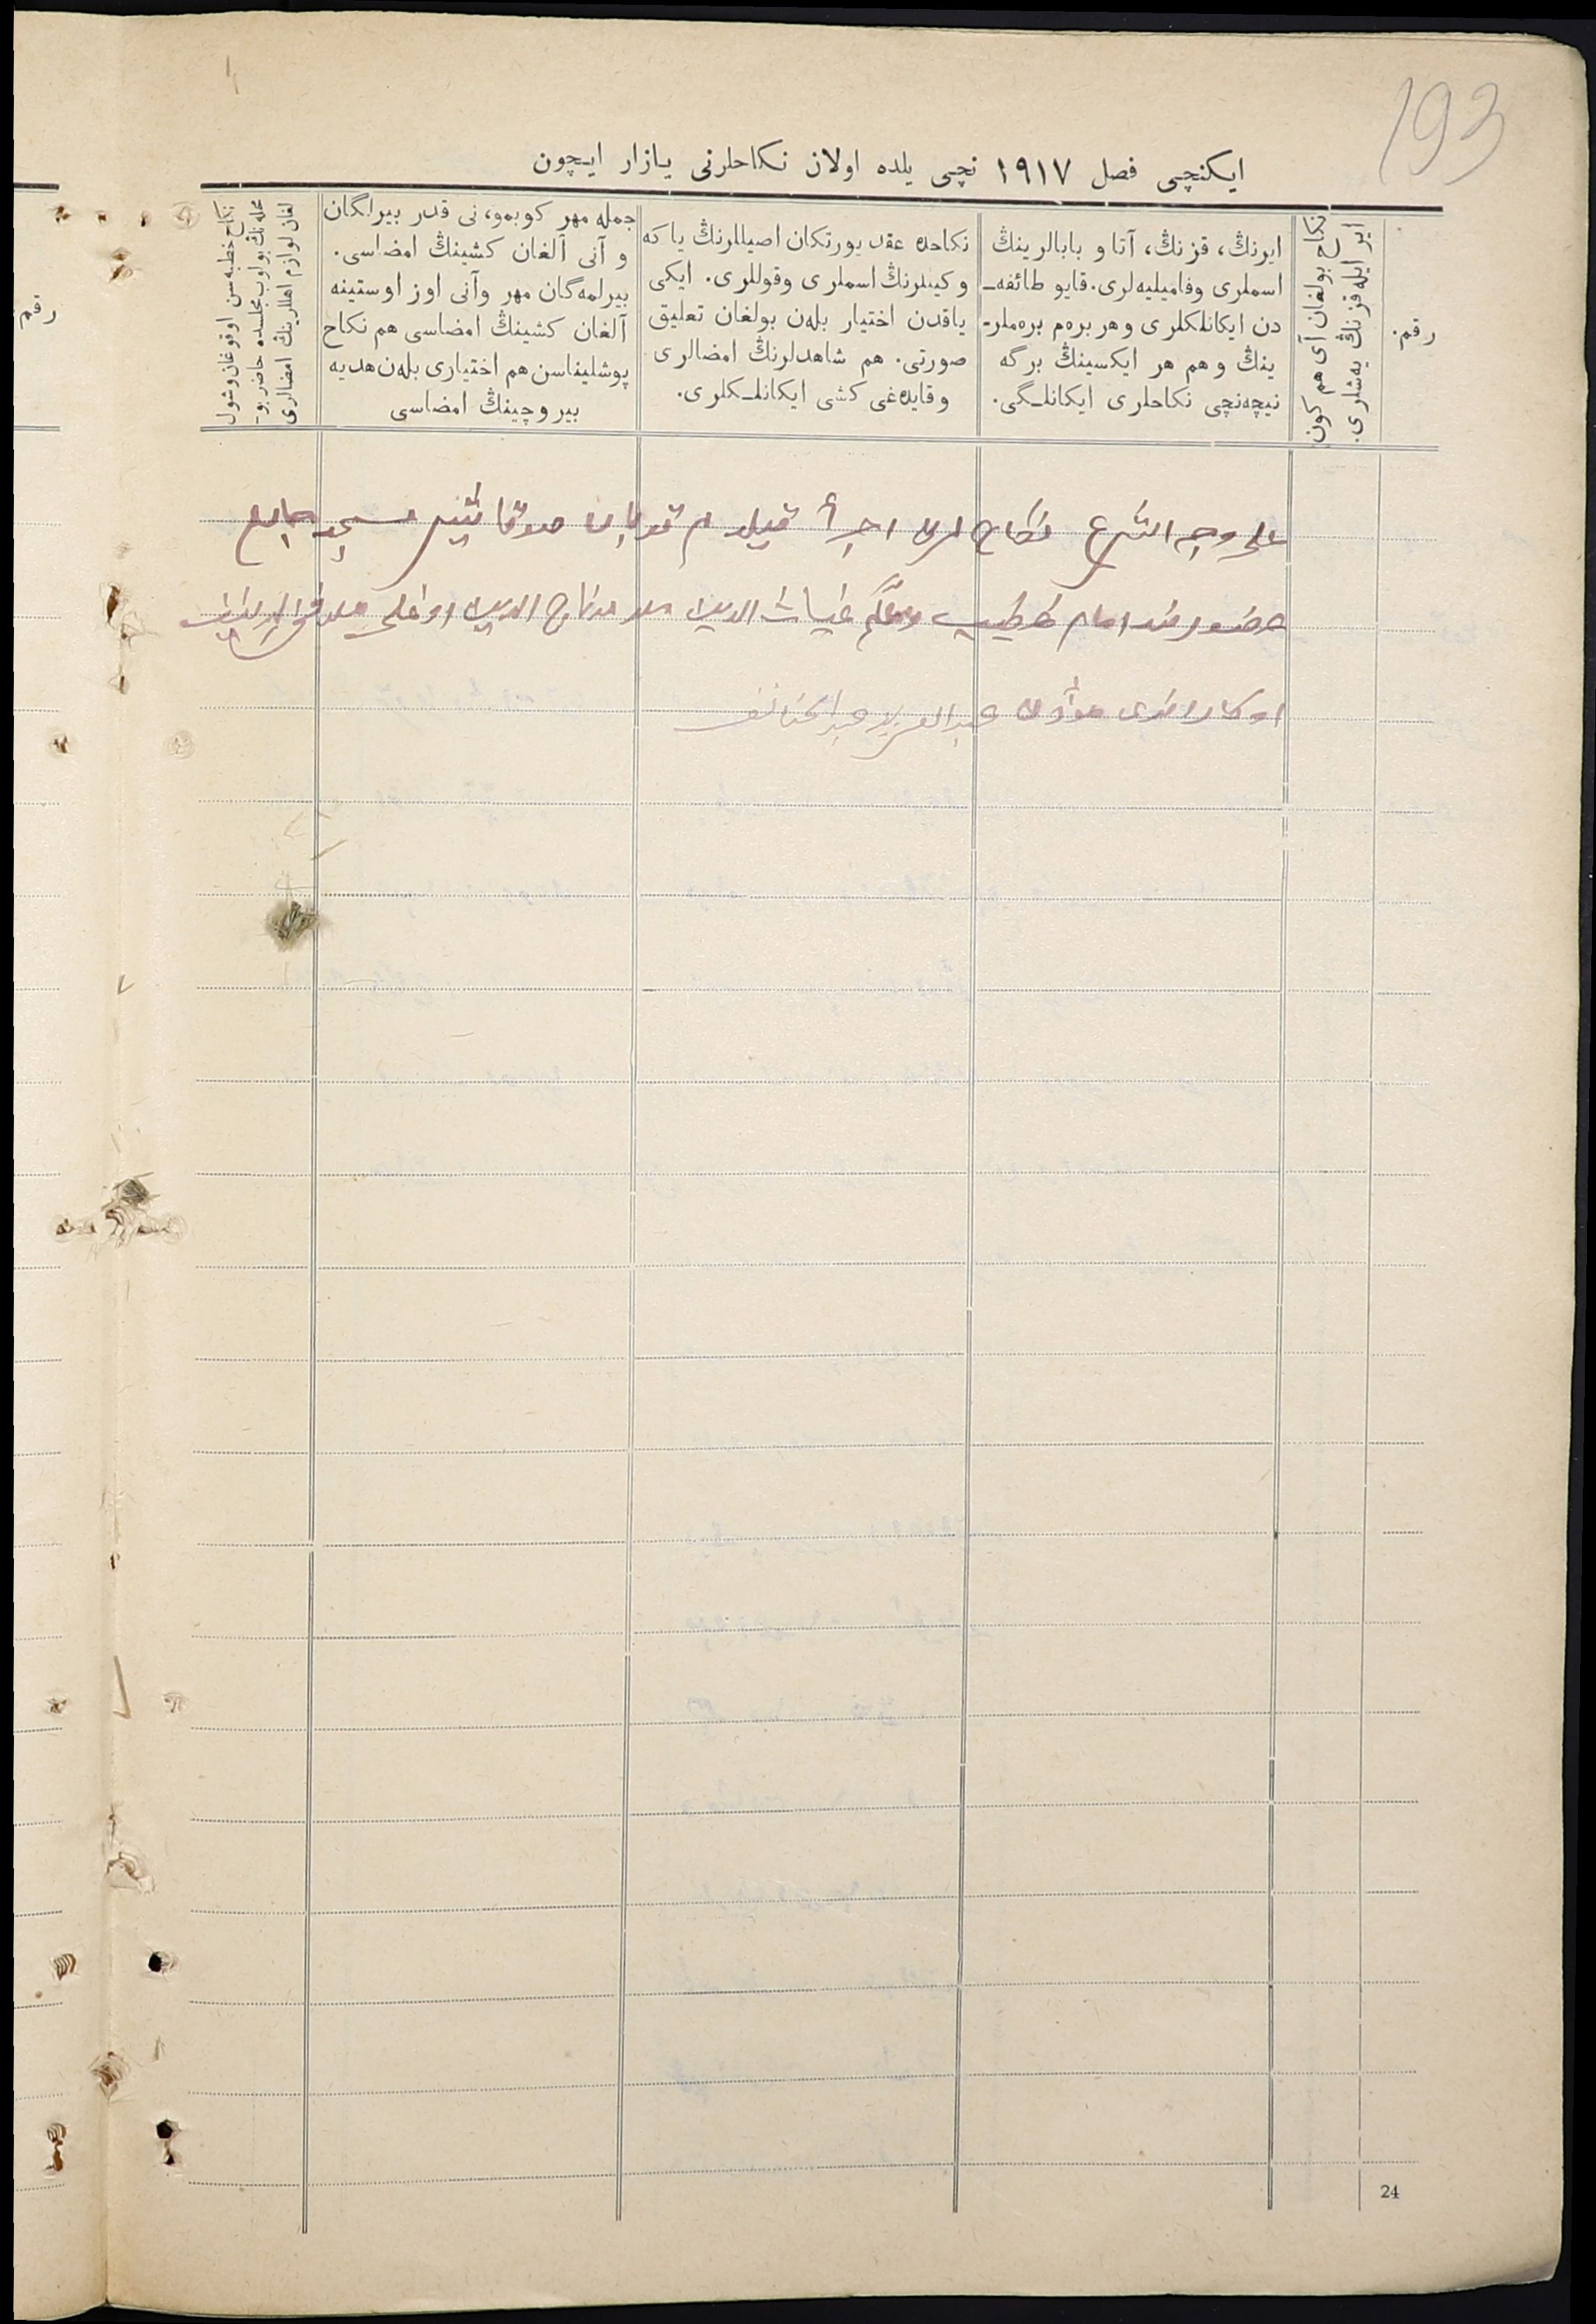 193
ایکنچی فصل ١٩١٧ نچی یلده اولان نکاحلرنی یازار ایچون
رقم.
نکاح بولغان آی هم کون
ایر ایله قزنڭ یەشلری.
ایرنڭ، قزنڭ، آتا و بابالرینڭ
اسملری وفامیلیه‌لری. قایو طائفه‌ـ
دن ایکانلکلری وهر برەم برەملرـ
ینڭ وهم هر ایکسینڭ برگه
نیچه‌نچی نکاحلری ایکانلـگی.
نکاحده عقد یورتکان اصیللرنڭ یا که
وکیللرنڭ اسملری وقوللری. ایکی
یاقدن اختیار بلەن بولغان تعلیق
صورتی. هم شاهدلرنڭ امضالری
وقایدەغی کشی ایکانلـکلری.
جمله مهر کوبمو، نی قدر بیرلگان
و آنی آلغان کشینڭ امضاسی.
بیرلمه‌گان مهر وآنی اوز اوستینه
آلغان کشینڭ امضاسی هم نکاح
پوشلیناسن هم اختیاری بلەن هدیه
بیروچینڭ امضاسی
نکاح خطبه‌سن اوقوغان وشول
محله‌نڭ بولوب مجلسده حاضر بوـ
لغان لوازم اهللرینڭ امضالری
علی وجه الشرع نکاح اجرأ قیلدم مسجد جامع
حضورنده امام خطیب ومعلم غیاث الدین تاج الدین اوغلی
مؤذن عبد العزیز
رقم.
24